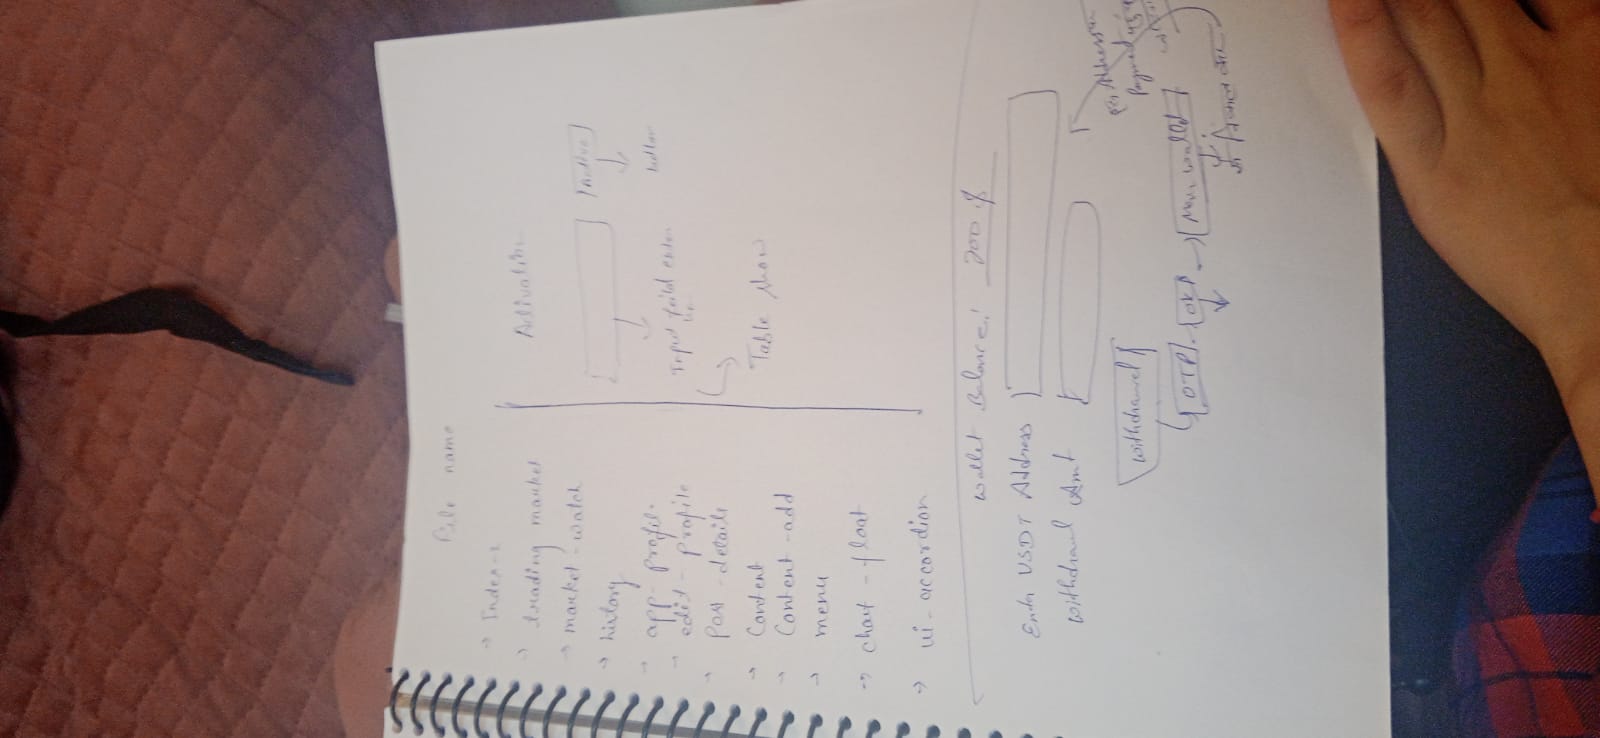 File name
→ Index-2
→ trading market
→ market-watch
→ history
→ app-profile
→ edit-profile
→ Post-details
→ Content
→ Content-add
→ menu
→ chart-float
→ ui-accordion
Activation
Active
button
Input feild enter
Table show
Wallet Balance! 200 $
Enter USDT Address
Withdrawl Amt
Withdrawel
OTP
Main wallet